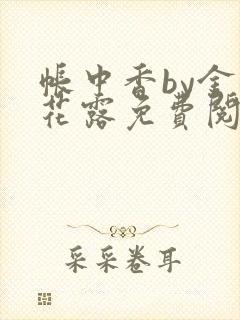 帳中香by金
花露免費閱
采采卷耳